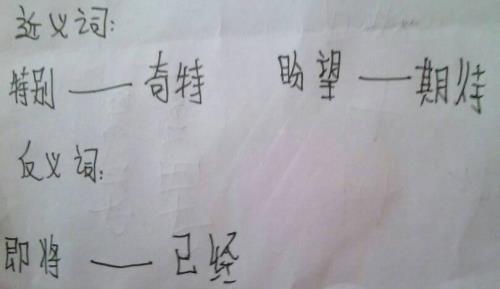 近义词:
特别——奇特 盼望——期待
反义词:
即将——已经